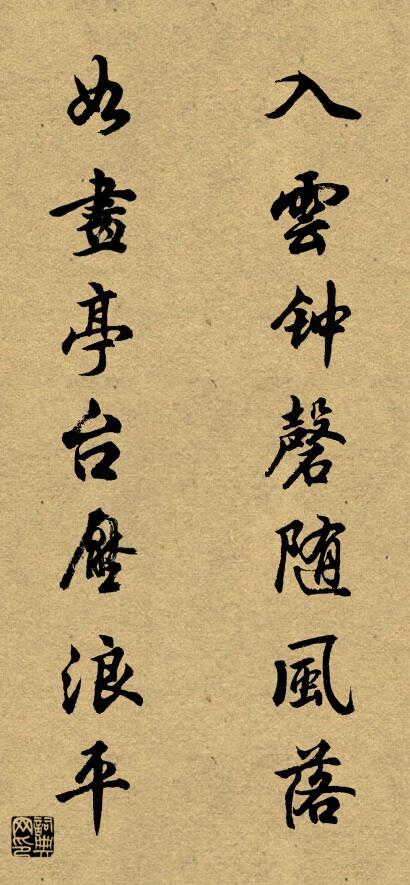 入雲钟磬随風落
如畫亭台壓浪平
詞典网印